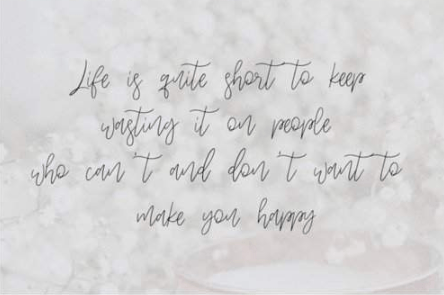 Life is quite short to keep
wasting it on people
who can't and don't want to
make you happy